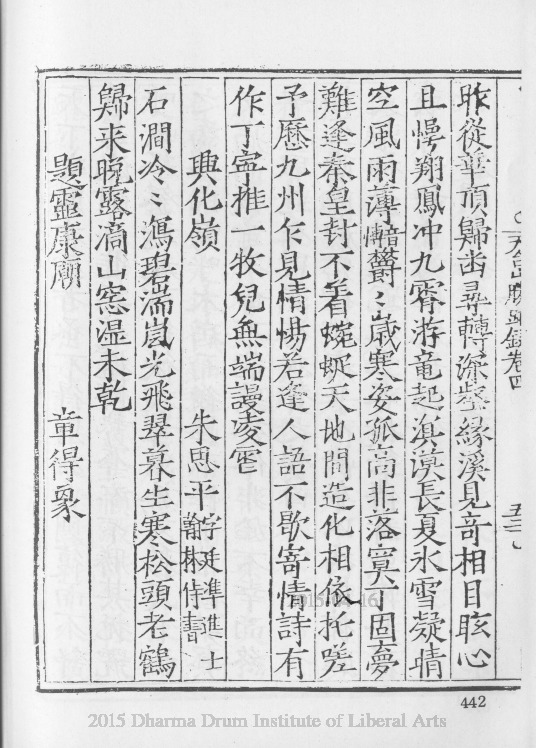 昨從華頂歸幽尋轉深壑緣溪見奇相目眩心
且愕翔鳳冲九霄游竜起滇漠長夏氷雪凝晴
空風雨薄黯欝〻歲寒姿孤高非落寞丁固夢
難逢秦皇封不着蜿蜒天地間造化相依托嗟
予歷九州乍見情惕若逢人語不歇寄情詩有
作丁寧推一牧兒無端謾凌
興化嶺 朱思平 字廷準進士 翰林侍書
石澗冷〻瀉碧湍嵐光飛翠暮生寒松頭老鶴
歸来晚露滴山窓湿未乾
題靈康廟 章得象
天台勝蹟錄卷四
442
2015 Dharma Drum Institute of Liberal Arts